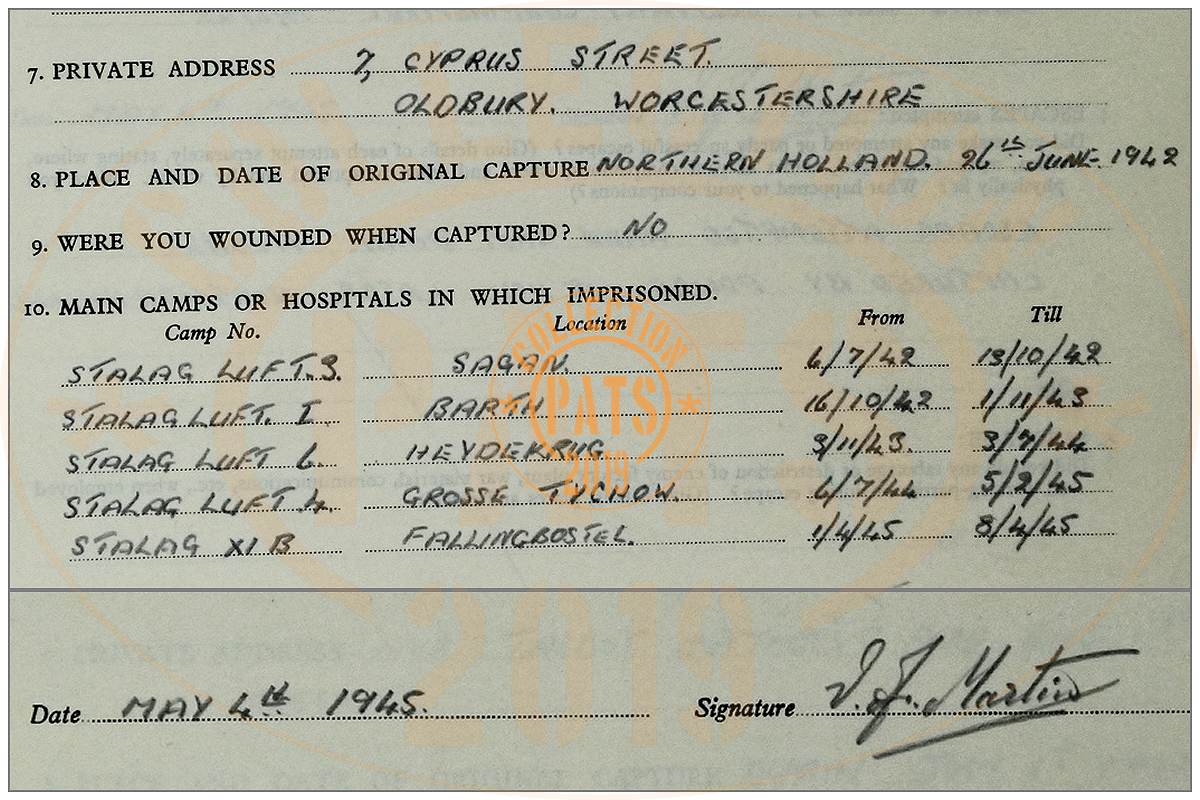 7. PRIVATE ADDRESS 7, CYPRUS STREET.
OLDBURY. WORCESTERSHIRE
8. PLACE AND DATE OF ORIGINAL CAPTURE NORTHERN HOLLAND. 26th JUNE. 1942
9. WERE YOU WOUNDED WHEN CAPTURED? NO
10. MAIN CAMPS OR HOSPITALS IN WHICH IMPRISONED.
Camp No. Location From Till
STALAG LUFT.3. SAGAN. 6/7/42 13/10/42
STALAG LUFT. I. BARTH 16/10/42 1/11/43
STALAG LUFT 6. HEYDEKRUG 3/11/43. 3/7/44
STALAG LUFT 4. GROSSE TYCHOW. 6/7/44 5/2/45
STALAG XI B FALLINGBOSTEL. 1/4/45 8/4/45
COLLECTION
PATS
2019
Date MAY 4th 1945. Signature J. Martin